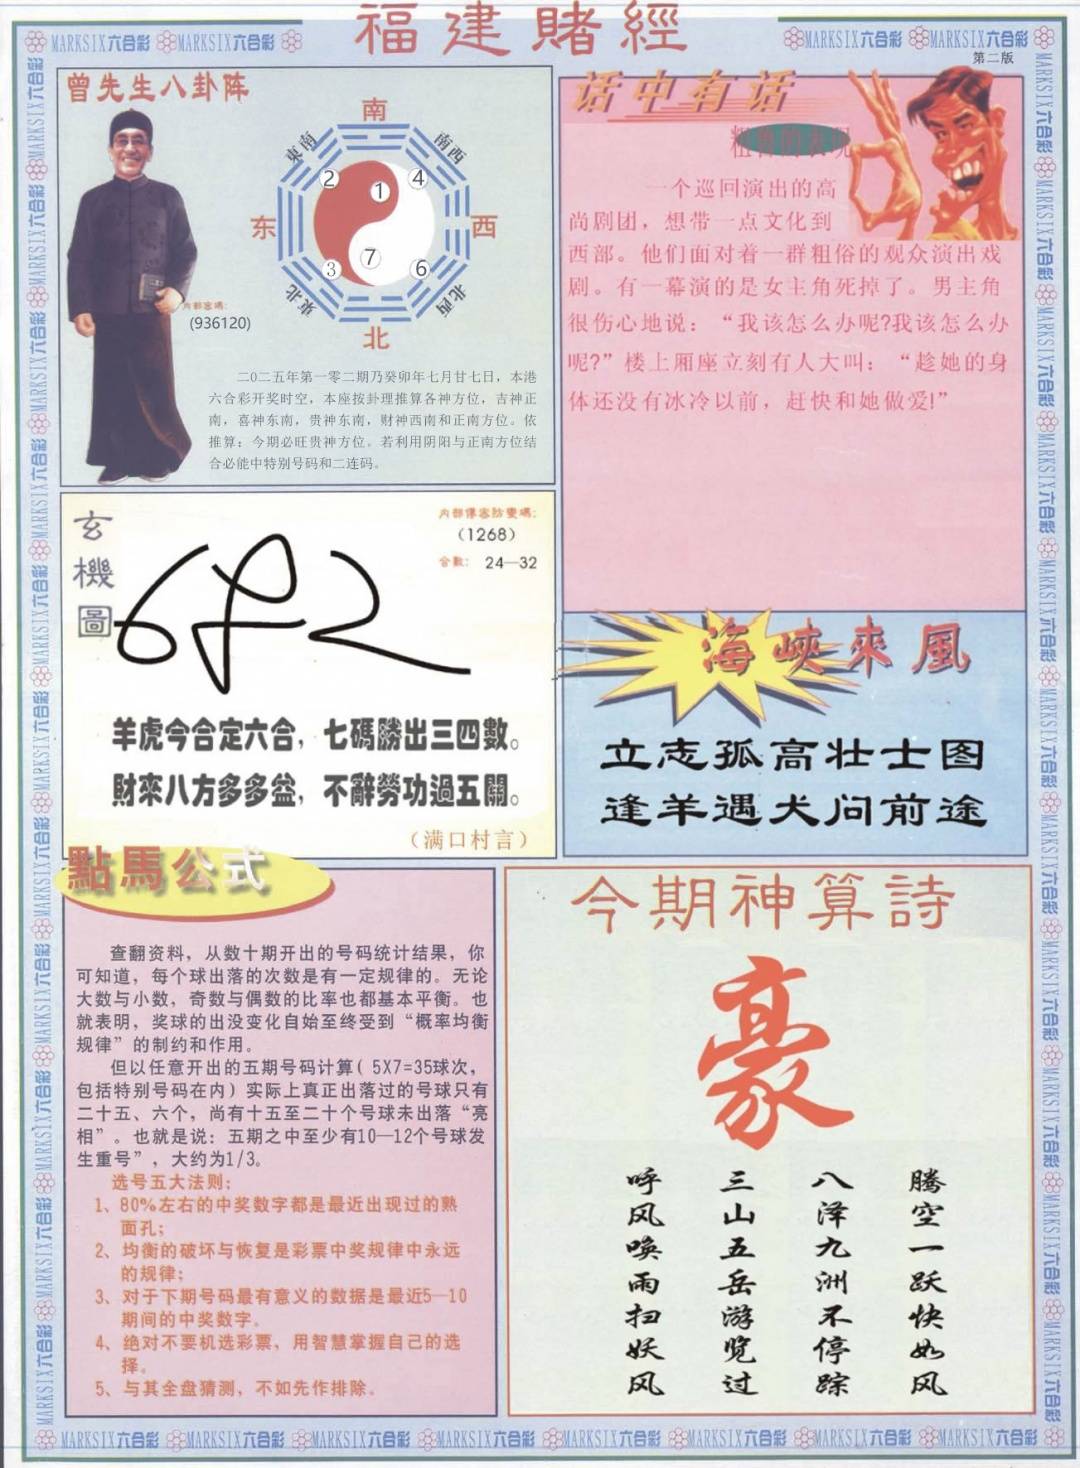 福建賭經
第二版
MARKSIX六合彩
曾先生八卦阵
南
東南
南西
2
1
4
东
西
7
3
6
東北
北西
北
内部密碼:
(936120)
二0二五年第一零二期乃癸卯年七月廿七日，本港
六合彩开奖时空，本座按卦理推算各神方位，吉神正
南，喜神东南，贵神东南，财神西南和正南方位。依
推算；今期必旺贵神方位。若利用阴阳与正南方位结
合必能中特别号码和二连码。
话中有话
一个巡回演出的高
尚剧团，想带一点文化到
西部。他们面对着一群粗俗的观众演出戏
剧。有一幕演的是女主角死掉了。男主角
很伤心地说：“我该怎么办呢?我该怎么办
呢?”楼上厢座立刻有人大叫：“趁她的身
体还没有冰冷以前，赶快和她做爱!”
玄機圖
内部傳密防變碼:
(1268)
合數: 24—32
羊虎今合定六合，七碼勝出三四數。
財來八方多多益，不辭勞功過五關。
(满口村言)
海峽來風
立志孤高壮士图
逢羊遇犬问前途
點馬公式
查翻资料，从数十期开出的号码统计结果，你
可知道，每个球出落的次数是有一定规律的。无论
大数与小数，奇数与偶数的比率也都基本平衡。也
就表明，奖球的出没变化自始至终受到“概率均衡
规律”的制约和作用。
但以任意开出的五期号码计算( 5X7=35球次，
包括特别号码在内) 实际上真正出落过的号球只有
二十五、六个，尚有十五至二十个号球未出落“亮
相”。也就是说：五期之中至少有10—12个号球发
生重号”，大约为1/3。
选号五大法则：
1、80%左右的中奖数字都是最近出现过的熟
面孔；
2、均衡的破坏与恢复是彩票中奖规律中永远
的规律；
3、对于下期号码最有意义的数据是最近5—10
期间的中奖数字。
4、绝对不要机选彩票，用智慧掌握自己的选
择。
5、与其全盘猜测，不如先作排除。
今期神算詩
豪
腾空一跃快如风
八泽九洲不停踪
三山五岳游览过
呼风唤雨扫妖风